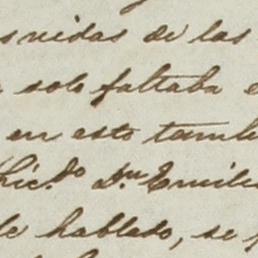 de las
solo faltaba
en esto tambi
Lic.do Dn. Emilio
de hablado, se